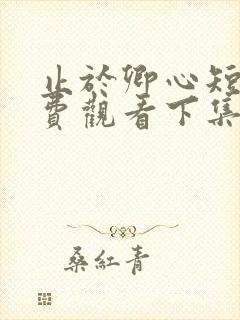 止於卿心短
費觀看下集
桑紅青